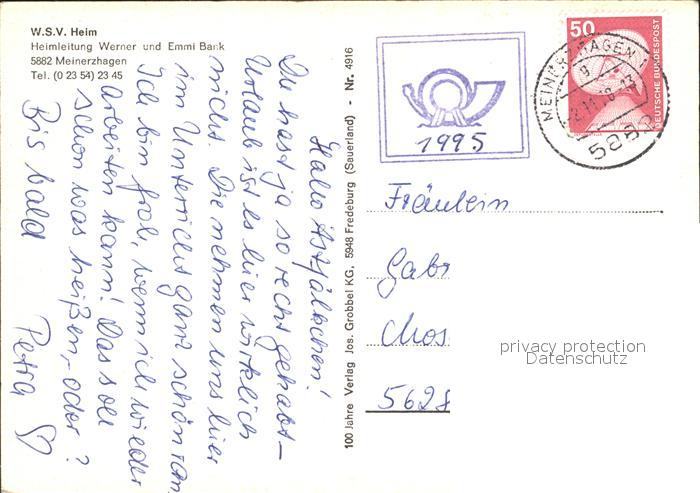 W.S.V. Heim
Heimleitung Werner und Emmi Bank
5882 Meinerzhagen
Tel. (0 23 54) 23 45
Hallo
Du hast ja so recht gehabt –
Urlaub ist es hier wirklich
nicht. Die nehmen uns hier
im Unterricht ganz schön ran.
Ich bin froh, wenn ich wieder
arbeiten kann! Das soll
schon was heißen, – oder?
Bis bald
Petra
100 Jahre Verlag Jos. Grobbel KG, 5948 Fredeburg (Sauerland) - Nr. 4916
1995
50
DEUTSCHE BUNDESPOST
MEINERZHAGEN 1
5882
Fräulein
Gabr
Mos
5628
privacy protection
Datenschutz